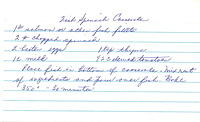 Fish Spinach Casserole
1 lb salmon or other fish fillets
2 # chopped spinach
2 beaten eggs 1 tsp thyme
1 c milk 1 - 2 sliced tomatoes
Place fish in bottom of casserole. Mix rest
of ingredients and pour over fish. Bake
350° - 20 minutes